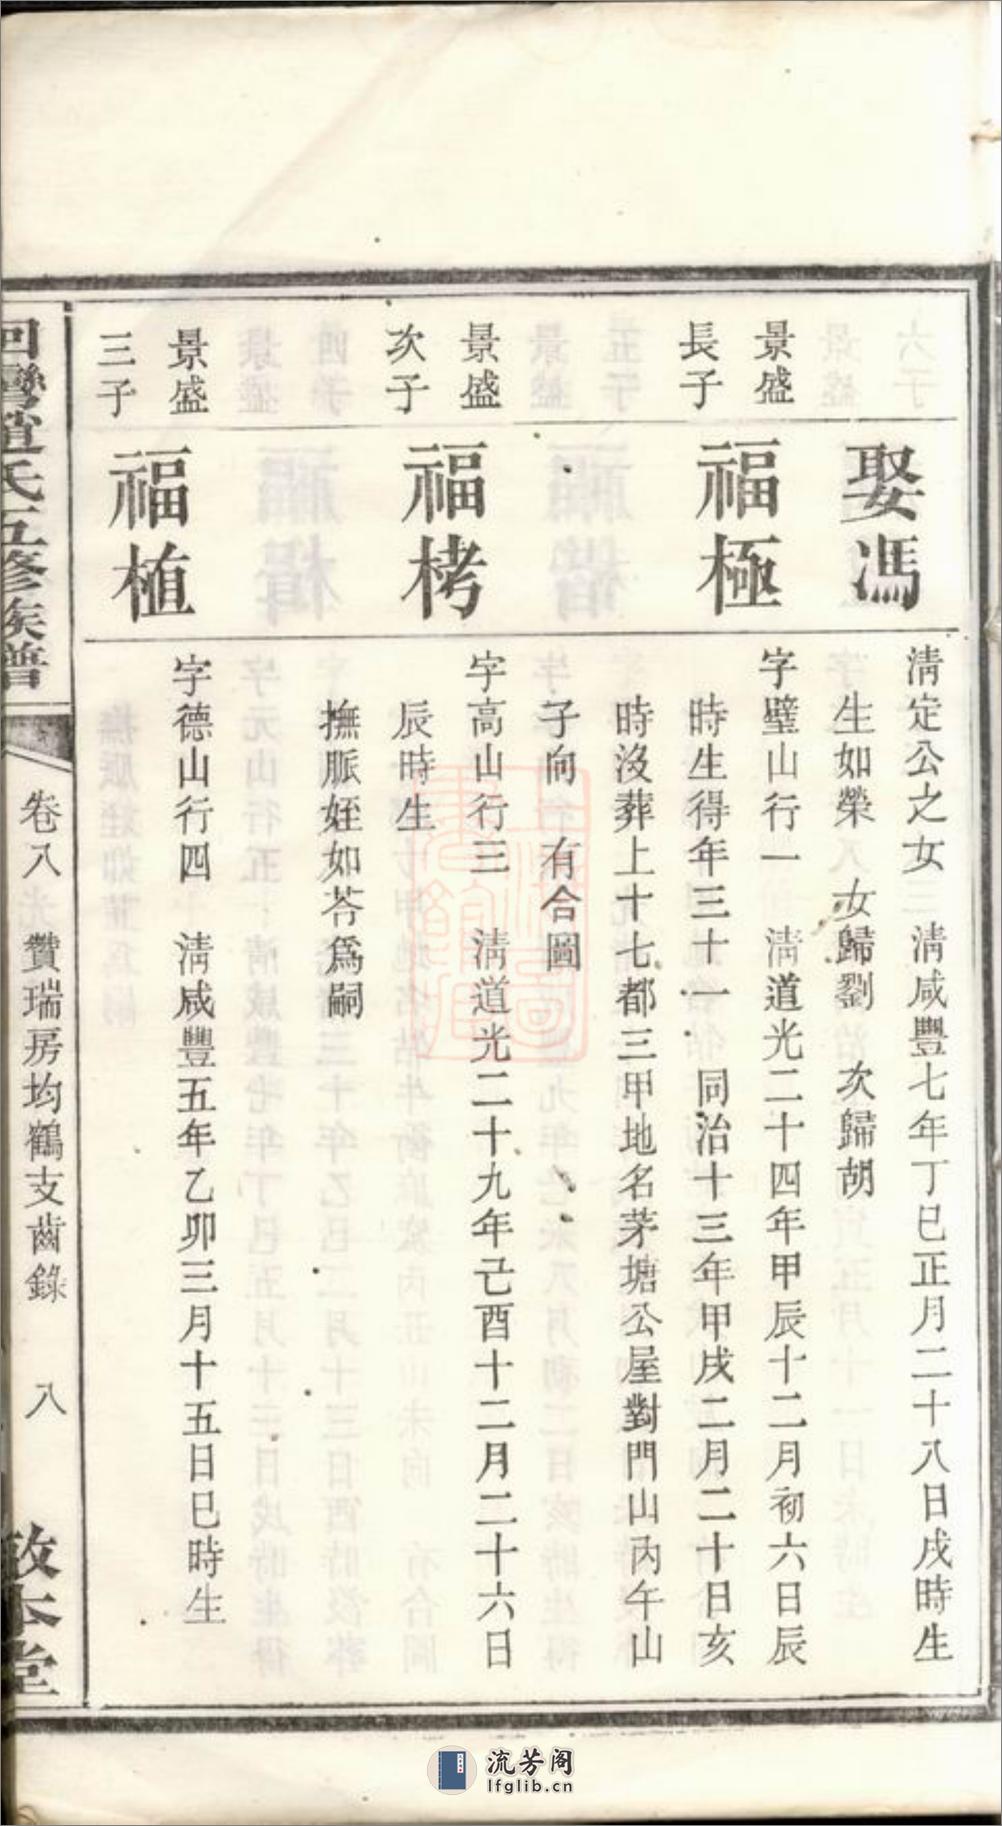 娶馮
清定公之女　清咸豐七年丁巳正月二十八日戌時生
生如榮　女歸劉　次歸胡
景盛
長子
福極
字璧山行一　清道光二十四年甲辰十二月初六日辰
時生得年三十一　同治十三年甲戌二月二十日亥
時沒葬上十七都三甲地名茅塘公屋對門山丙午山
子向　有合圖
景盛
次子
福栲
字高山行三　清道光二十九年己酉十二月二十六日
辰時生
撫脈姪如荅爲嗣
景盛
三子
福植
字德山行四　清咸豐五年乙卯三月十五日巳時生
趙氏五修族譜
卷八　贊瑞房均鶴支齒錄　八
敦本堂
流芳阁
lfglib.cn